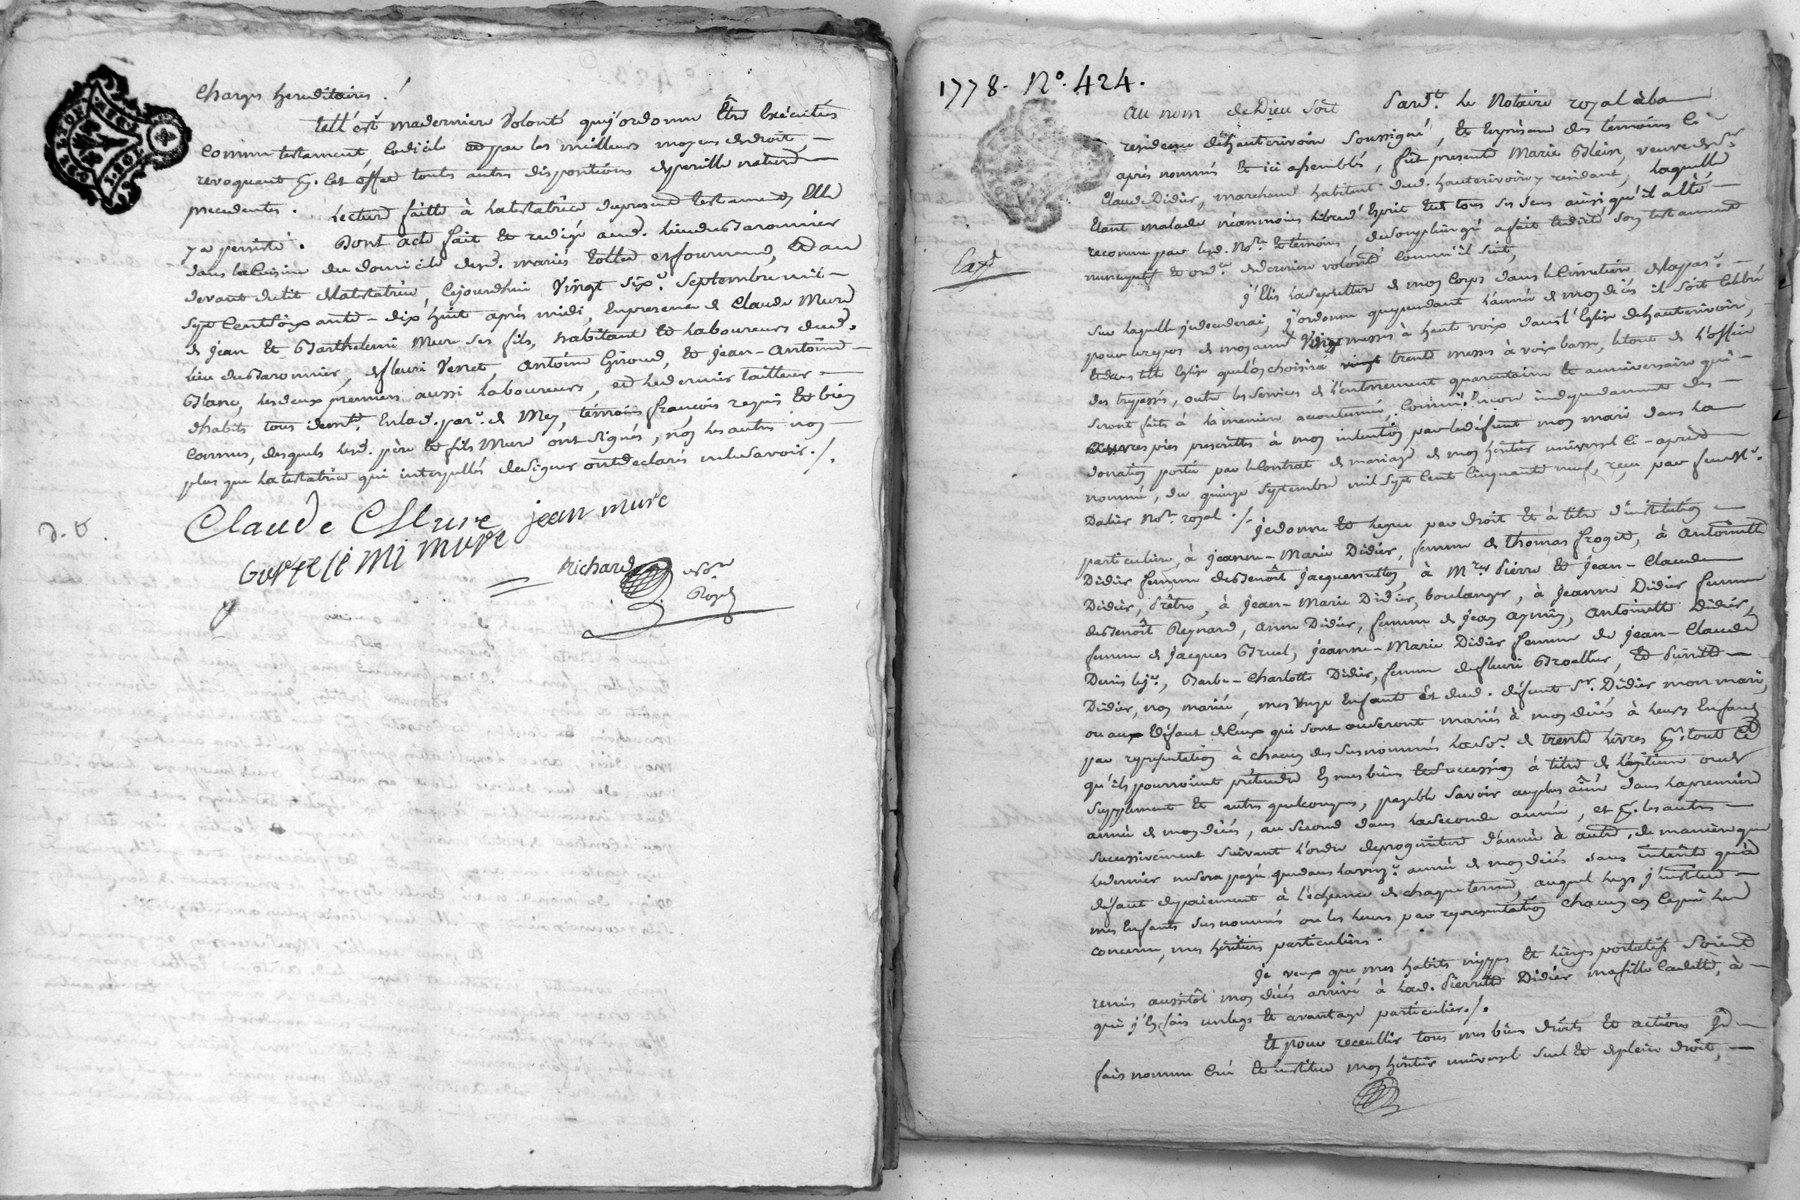 Charges hereditaires.
tell'est maderniere Volonté qu'jordonne Etre Exécutée
comme testament, Codicile et par les meilleurs moyens dedroit,
revoquant Et. cet effet touttes autres dispositions depareille nature
precedentes. Lecture faitte à latestatrice dupresent testament Elle
y a persisté. Dont acte fait et redigé aud. lieu du Baronnier
dans lacuisine du domicile desd. mariés et
devant delit delatestatrice, cejourdhui Vingt six.e Septembre mil
Sept Cent Soixante-dix huit après midi, Enpresence de Claude Mure
de jean et Barthelemi Mure ses fils, habitant et laboureurs dud.
lieu du Baronnier, de fleuri Verret antoine Giroud, et jean-antoine
Blanc, lesdeux premiers aussi laboureurs, et ledernier tailleur
dhabits tous demt. Enlad. par. de Mey, témoins françois requis et bien
connus, desquels lesd. père et fils Mure ont signés, non les autres non
plus que latestatrice qui interpellés designer ontdeclarés nelesavoir./.
Claude Mure jean mure
bartelemi mure
Richard Nore
Royal
1778. N.o 424.
au nom de Dieu soit Pardt. le Notaire royal à la
residence d'hauterivoire soussigné, et Enpresence des témoins ci-
après nommés et ici assemblés, fut presente Marie Blein, veuve de Sr.
Claude Didier, marchand habitant dud. hauterivoire y residant, laquelle
Etant malade néanmoins librede Esprit et de tous ses sens ainsi qu'il a été
reconnu par lesd. Nore. et témoins, desonpleingré a fait et dicté son testament
nuncupatif et ordre. dederniere volonté comm'il suit,
j'Elis la sepulture de mon corps dans le Cimetiere dela parse.
sur laquelle jedecederai, j'ordonne que pendant l'année de mon décès il soit Celebré
pour le repos de mon ame Vingt messes à haut voix dans l'Eglise dehauterivoire,
et dans telle Eglise quel'on choisira trente messes à voix basse, letout de l'office
des trepassés, outre les Services de l'enterrement quarantaine et anniversaire qui
seront faits à la maniere accoutumée, comme Encore independamment des
œuvres pies prescrittes à mon intention par ledefunt mon mari dans la
donation portée par le Contrat de mariage de mon héritier universel ci-après
nommé, du quinze Septembre mil Sept Cent Cinquante neuf, reçu par feu Me.
Dalier Nore. royal./.
jedonne et legue par droit et à titre d'institution
particuliere, à jeanne-Marie Didier, femme de thomas froget, à antoinette
Didier femme de Benoît jacquemetton, à Mres Pierre et jean-Claude
Didier, Prêtres, à jean-Marie Didier, boulanger, à jeanne Didier femme
de Benoît Reynard, anne Didier, femme de jean aynin, antoinette Didier,
femme de jacques Bruel, jeanne-Marie Didier femme de jean-Claude
Denis lejne., Barbe-Charlotte Didier, femme de fleuri Broallier, et Pierrette
Didier, non mariée, mes onze Enfants et dud. défunt Sr. Didier mon mari,
ou aux défaut deceux qui sont ouseront mariés à mon décès à leurs Enfans
par representation à chacun des susnommés la so.e de trente livres Pr. tout ce
qu'ils pourroient prétendre Es mes biens et succession à titre de légitime ou de
supplement et autres quelconques, payable savoir au plus ainé dans la premiere
année de mon décès, au second dans laseconde année, et Pr. les autres
successivement suivant l'ordre deprogeniture d'année à autre, de maniere que
ledernier nesera payé que dans la onze. année de mon décès sans interêts qu'à
défaut depaiement à l'échéance de chaque terme, auquel legs j'institue
mes Enfants susnommés ou les leurs par representation chacun en ce qui le
concerne, mes héritiers particuliers.
je veux que mes habits nippes et linges portatifs soient
remis aussitôt mon décès arrivé à lad. Pierrette Didier mafille Cadette, à
qui j'En fais un legs et avantage particulier./.
Et pour recueillir tous mes biens droits et actions je
fais nomme Crée et institue mon héritier universel seul et deplein droit,